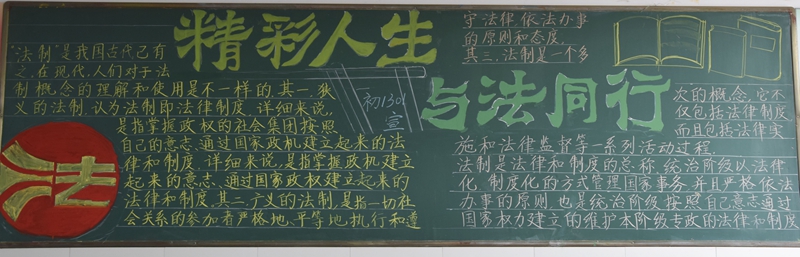 精彩人生
与法同行
初1301
宣
“法制”是我国古代已有
之,在现代,人们对于法
制概念的理解和使用是不一样的,其一,狭
义的法制,认为法制即法律制度。详细来说,
是指掌握政权的社会集团按照
自己的意志、通过国家政机建立起来的法
律和制度。详细来说,是指掌握政机建立
起来的意志、通过国家政权建立起来的
法律和制度,其二,广义的法制,是指一切社
会关系的参加者严格地、平等地执行和遵
守法律、依法办事
的原则和态度。
其三,法制是一个多
次的概念,它不
仅包括法律制度
而且包括法律实
施和法律监督等一系列活动过程。
法制是法律和制度的总称,统治阶级以法律
化、制度化的方式管理国家事务,并且严格依法
办事的原则,也是统治阶级按照自己意志通过
国家权力建立的维护本阶级专政的法律和制度